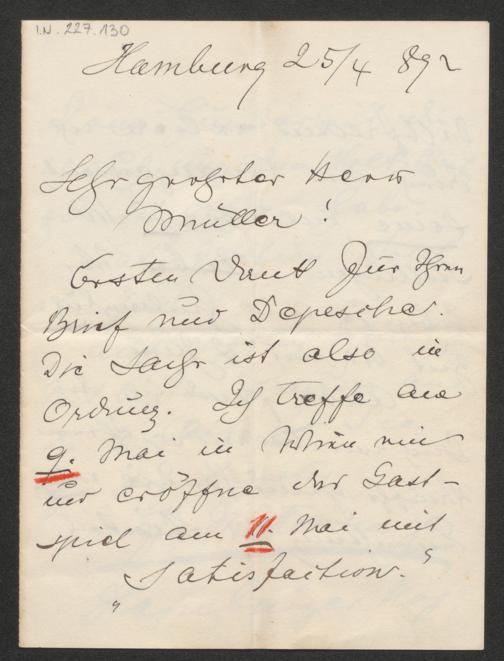 I.N. 227.130
Hamburg 25/4 892
Sehr geehrter Herr
Müller!
Besten Dank für Ihren
Brief und Depesche.
Die Sache ist also in
Ordnung. Ich treffe am
9. Mai in Wien ein
und eröffne das Gast-
spiel am 11. Mai mit
„Satisfaction."